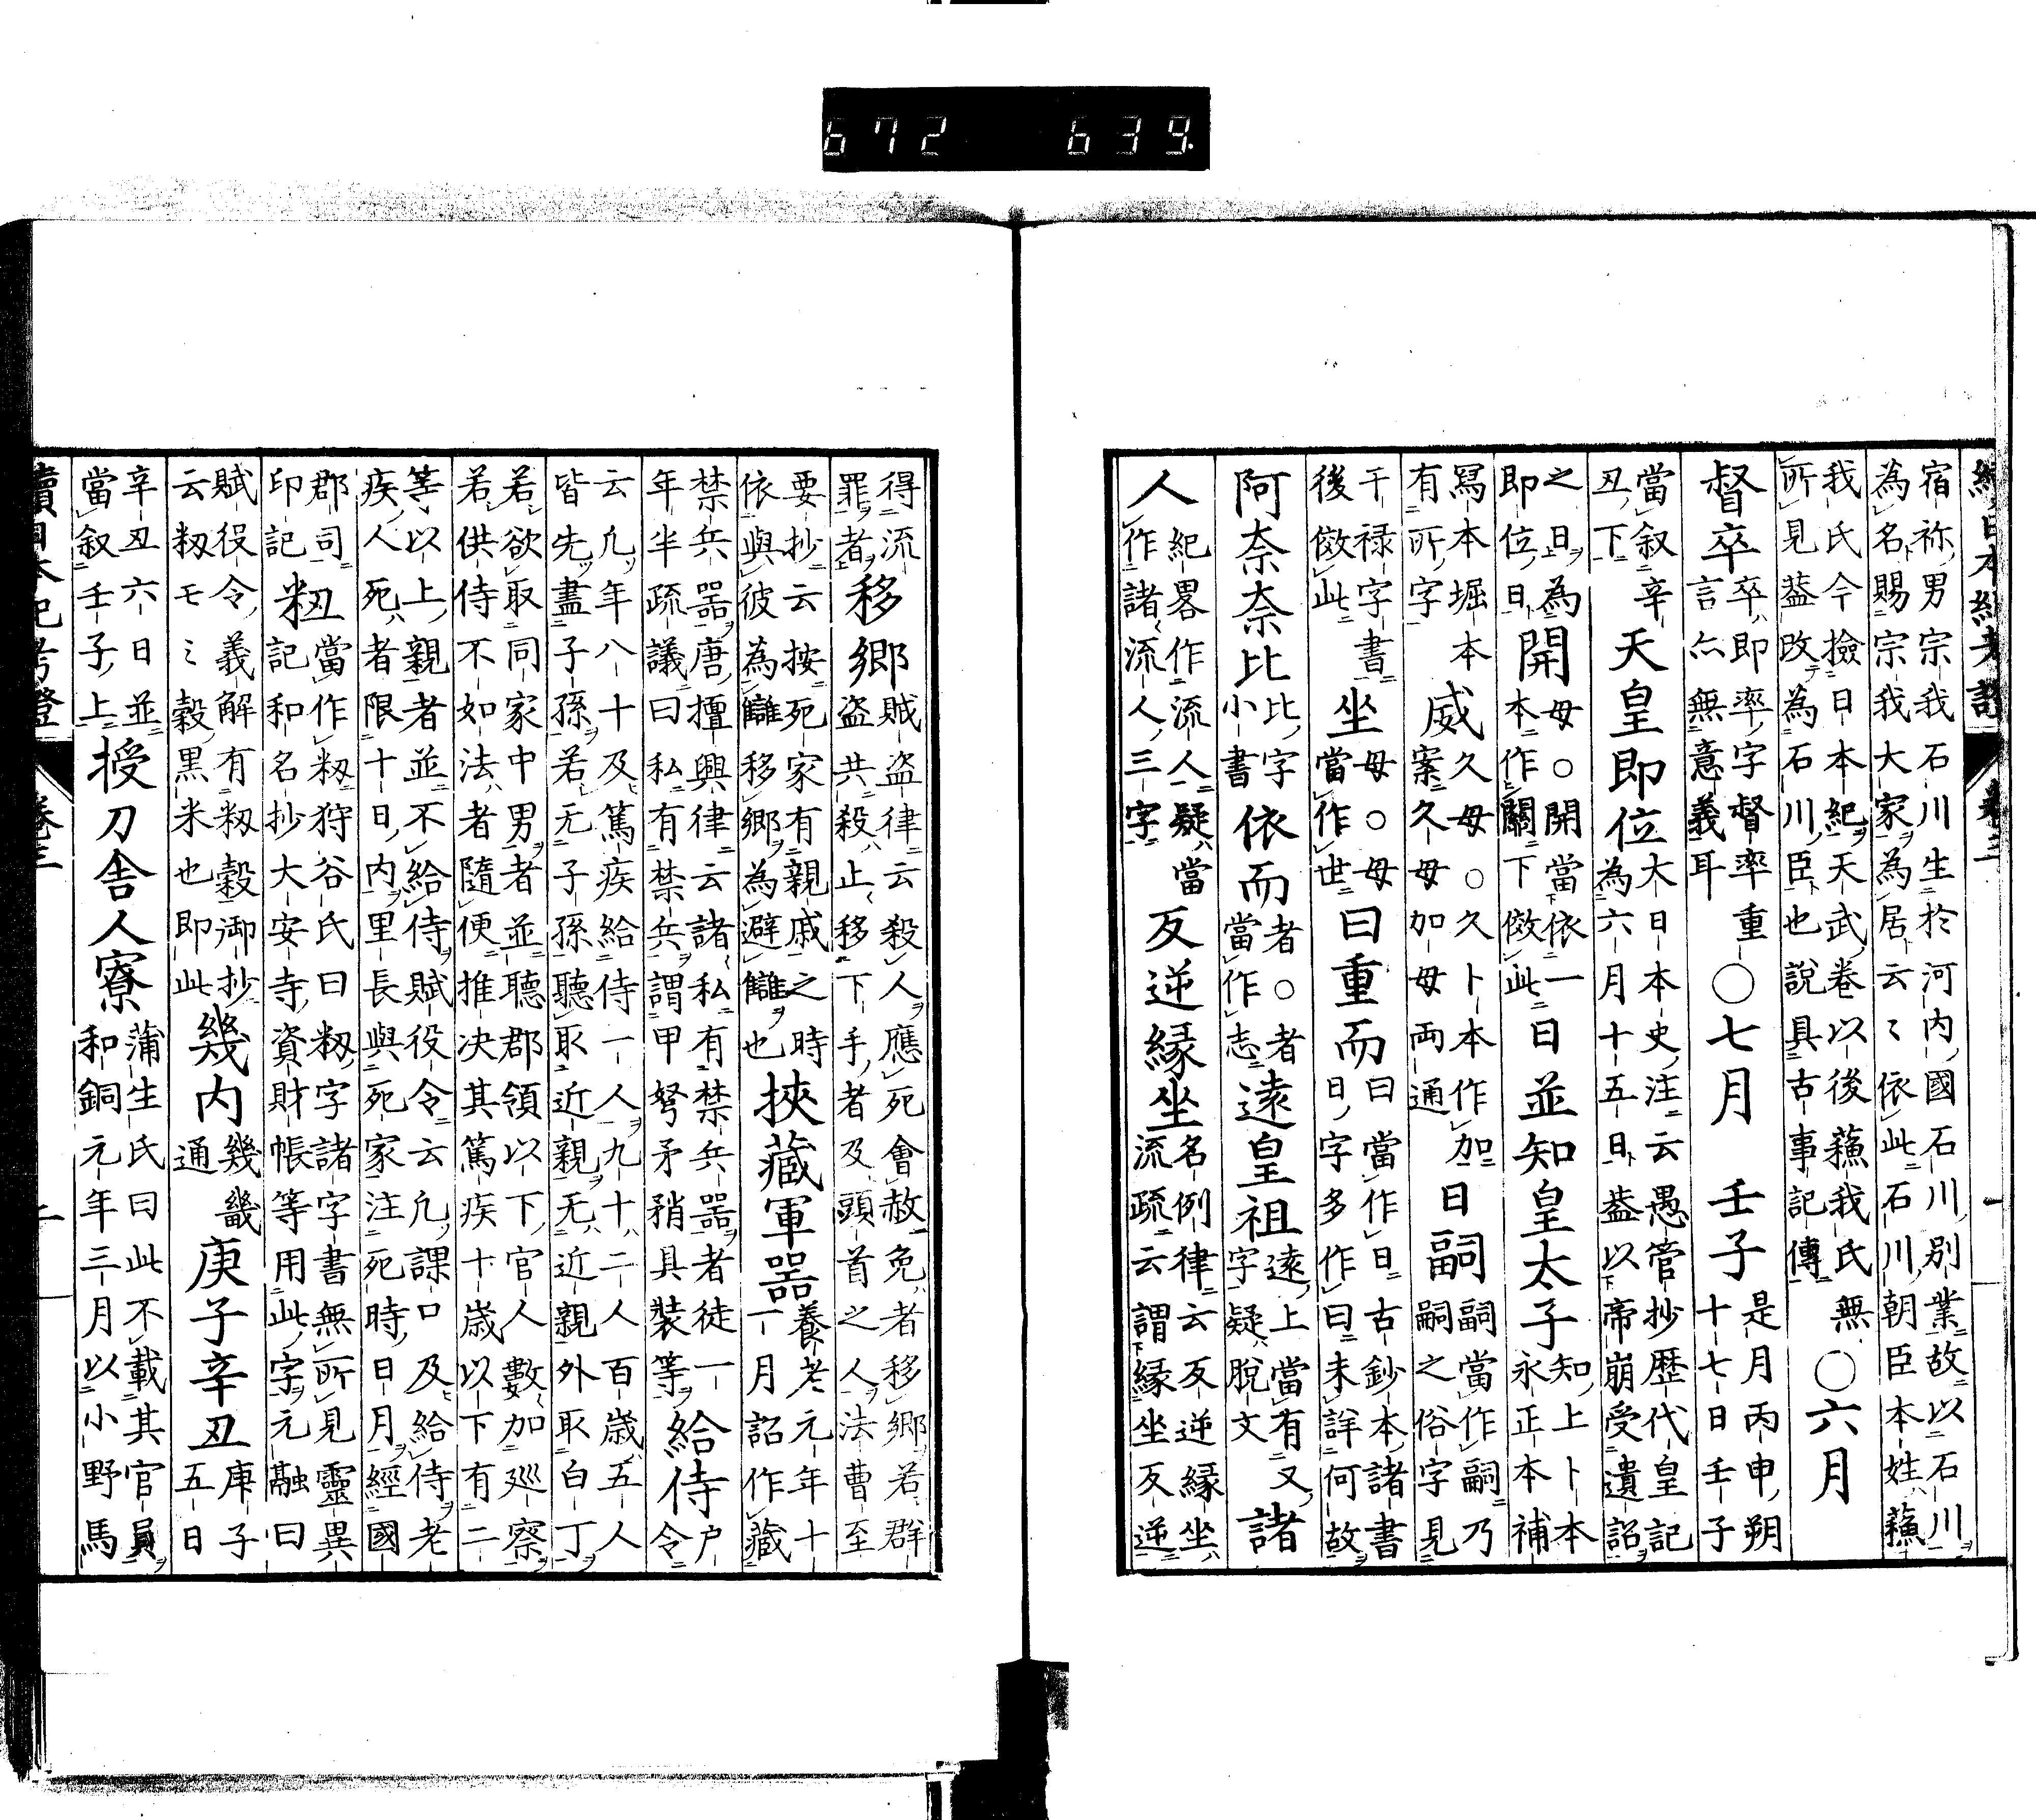 672 639.
續日本紀考證 卷三
宿祢男宗我石川生於河内國石川別業故以石川
為名賜宗我大家為居云々依此石川朝臣本姓蘓
我氏今撿日本紀天武卷以後蘓我氏無
所見葢改為石川臣也說具古事記傳 ○六月
督卒 卒即率字督率重
言亦無意義耳 ○七月 壬子 是月丙申朔
十七日壬子
當叙辛
丑下 天皇即位 大日本史注云愚管抄歴代皇記
為六月十五日葢以帝崩受遺詔
之日為
即位日 開 母○開當依一
本作關下倣此 日並知皇太子 知上卜本
永正本補
冩本堀本
有所字 威 久母○久卜本作加
案久母加母両通 日嗣 嗣當作嗣乃
嗣之俗字見
干禄字書
後倣此 坐 母○母
當作世 曰重而 曰當作日古鈔本諸書
日字多作曰未詳何故
阿奈奈比 比字
小書 依而 者○者
當作志 遠皇祖 遠上當有又
字疑脫文 諸
人 紀畧作流人疑當
作諸流人三字 反逆縁坐 名例律云反逆縁坐
流疏云謂縁坐反逆
得流
罪者 移郷 賊盗律云殺人應死會赦免者移郷若群
盗共殺止移下手者及頭首之人法曹至
要抄云按死家有親戚之時
依與彼為讎移郷為避讎也 挾藏軍器 養老元年十
一月詔作藏
禁兵器唐擅興律云諸私有禁兵器者徒一
年半疏議曰私有禁兵謂甲弩矛矟具装等 給侍 户
令
云凢年八十及篤疾給侍一人九十二人百歳五人
皆先盡子孫若无子孫聽取近親无近親外取白丁
若欲取同家中男者並聽郡領以下官人數加巡察
若供侍不如法者隨便推决其篤疾十歳以下有二
等以上親者並不給侍賦役令云凢課口及給侍老
疾人死者限十日内里長與死家注死時日月經國
郡司
印記 籾 當作籾狩谷氏曰籾字諸字書無所見靈異
記和名抄大安寺資財帳等用此字元融曰
賦役令義解有籾穀御抄
云籾モミ穀黒米也即此 幾内 幾畿
通 庚子辛丑 庚子
五日
辛丑六日並
當叙壬子上 授刀舎人寮 蒲生氏曰此不載其官員
和銅元年三月以小野馬
續日本紀考證 卷三 二